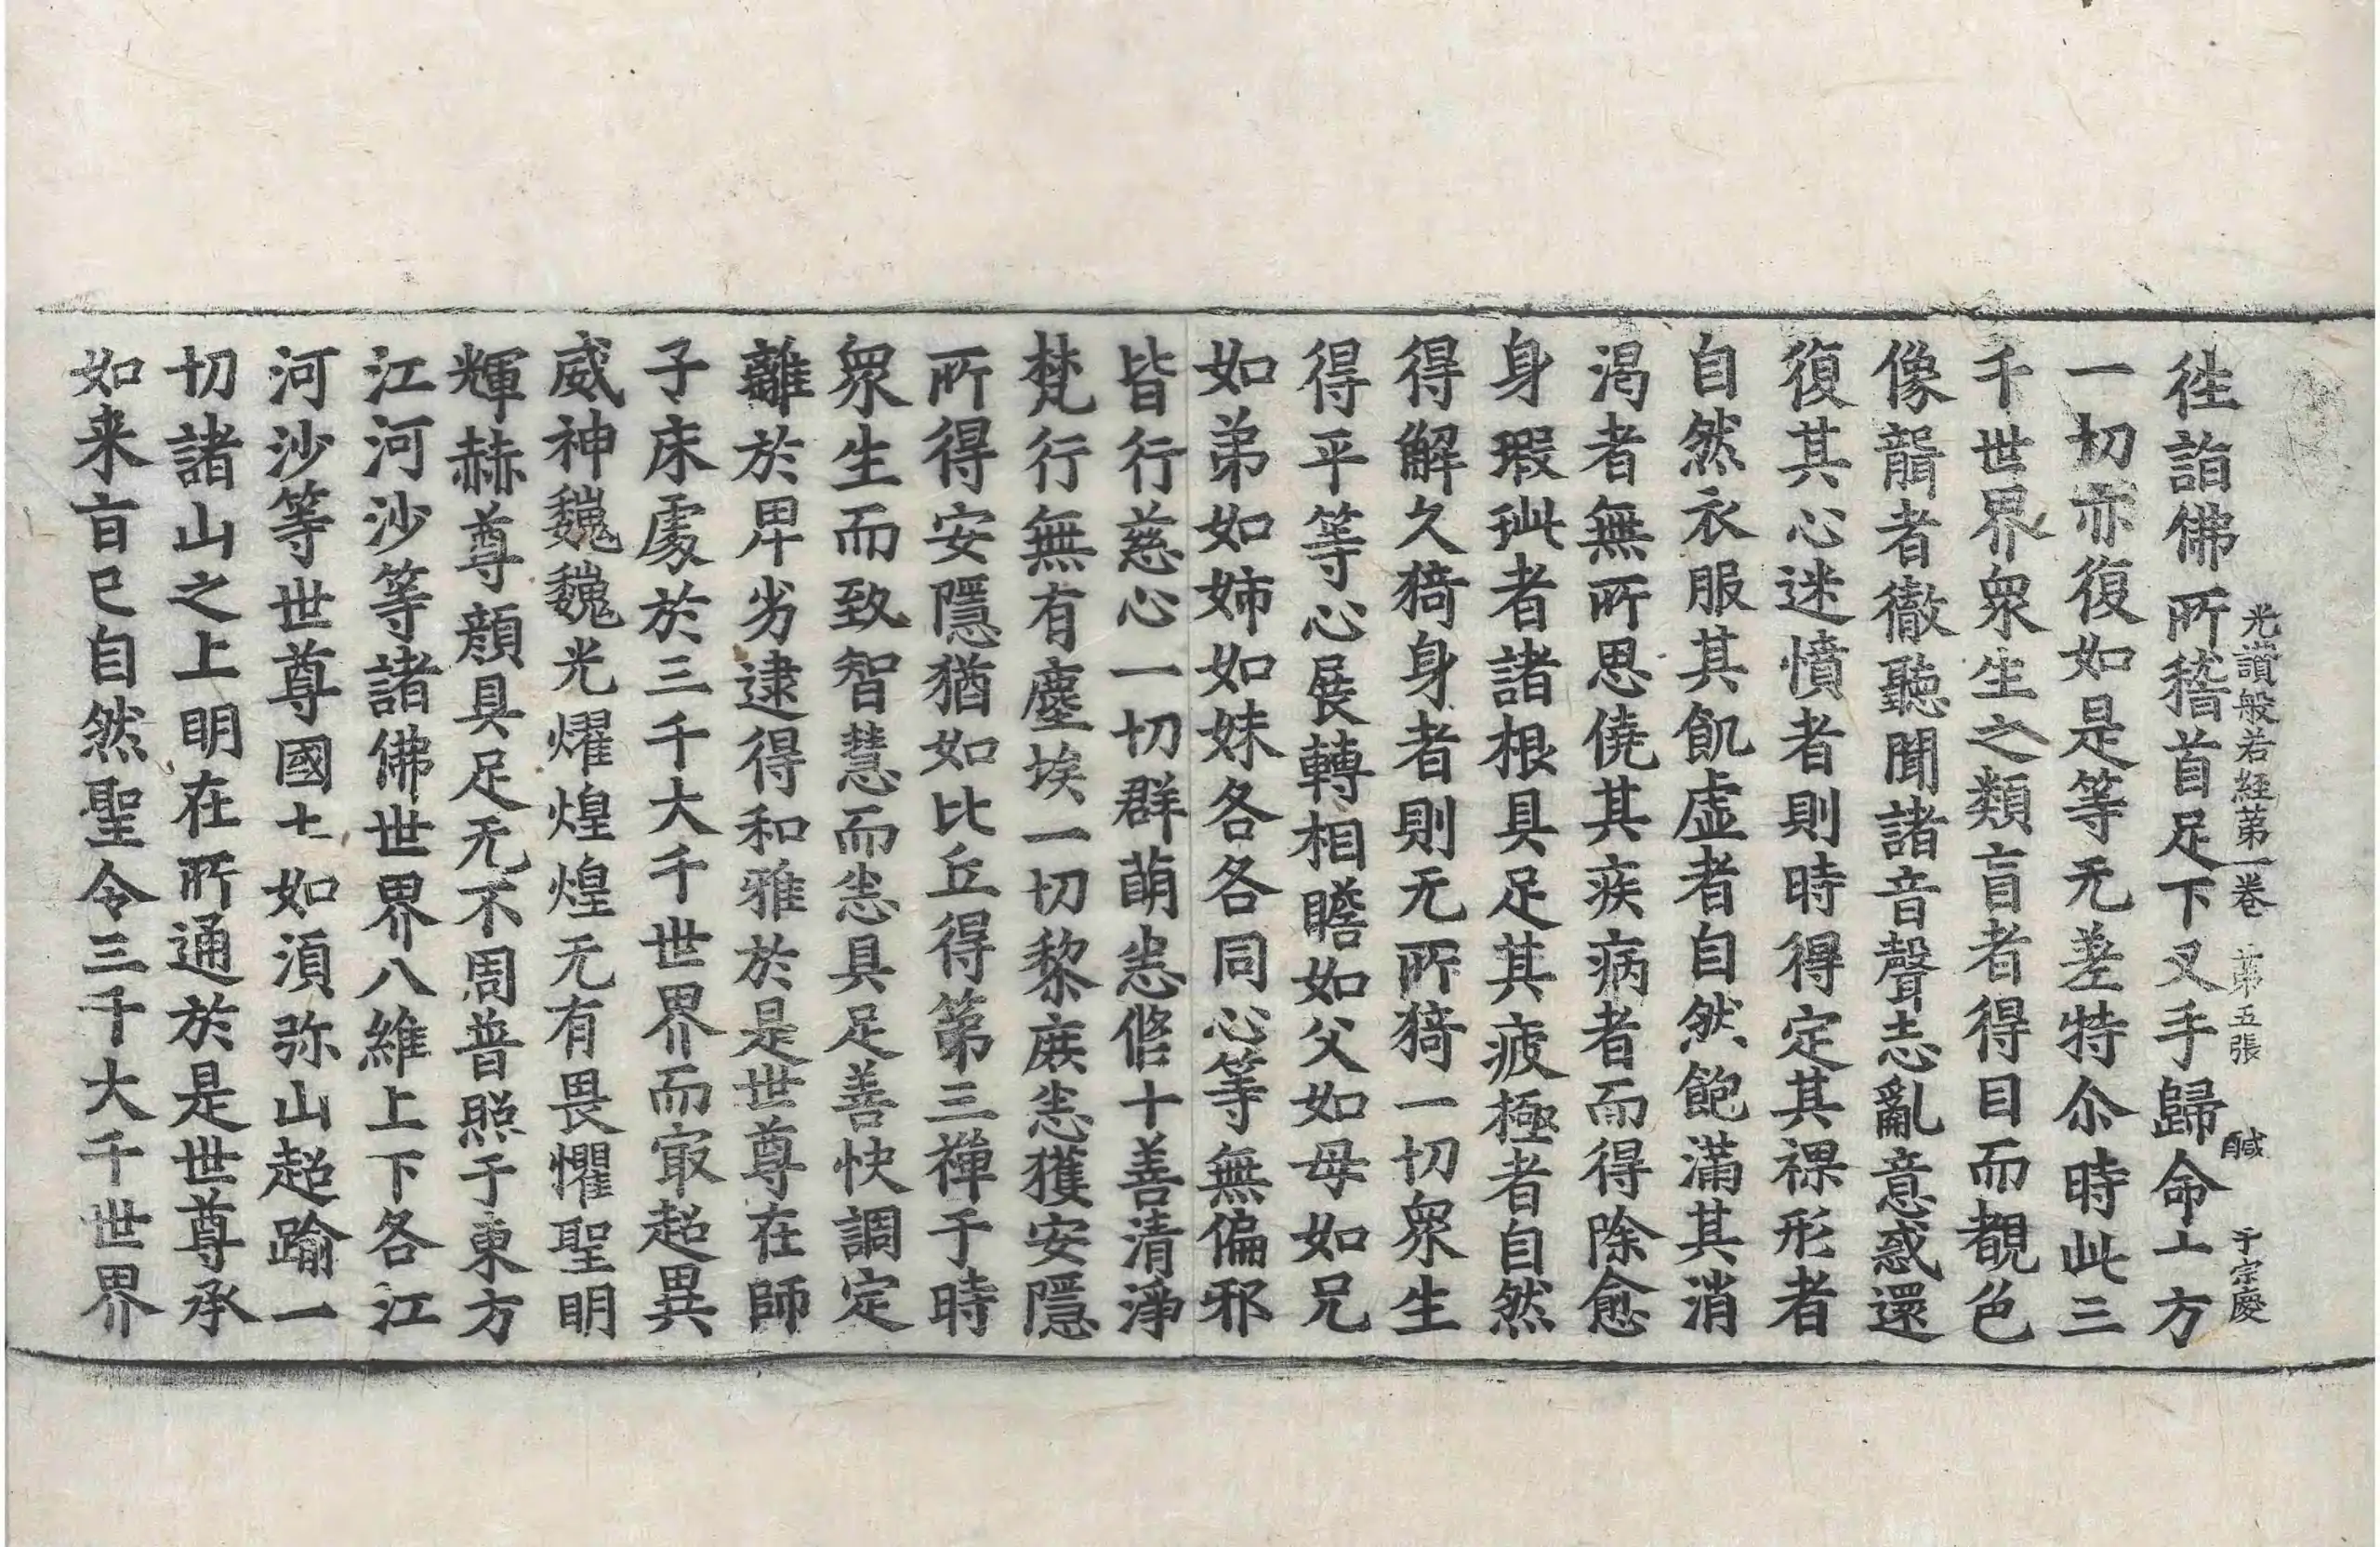 光讃般若經苐一卷 苐五張 醎 于宗慶
徃詣佛所稽首足下叉手歸命十方
一切亦復如是等无差特尒時此三
千世界衆生之類盲者得目而覩色
像聾者徹聽聞諸音聲志亂意惑還
復其心迷憒者則時得定其裸形者
自然衣服其飢虛者自然飽滿其消
渴者無所思僥其疾病者而得除愈
身瑕玼者諸根具足其疲極者自然
得解久猗身者則无所猗一切衆生
得平等心展轉相瞻如父如母如兄
如弟如姉如妹各各同心等無偏邪
皆行慈心一切群萌悉俻十善清淨
梵行無有塵埃一切黎庻悉獲安隱
所得安隱猶如比丘得第三禪于時
衆生而致智慧而悉具足善快調定
離於卑劣逮得和雅於是世尊在師
子床處於三千大千世界而㝡超異
威神巍巍光燿煌煌无有畏懼聖明
輝赫尊顔具足无不周普照于東方
江河沙等諸佛世界八維上下各江
河沙等世尊國土如湏弥山超踰一
切諸山之上明在所通於是世尊承
如来盲已自然聖令三千大千世界